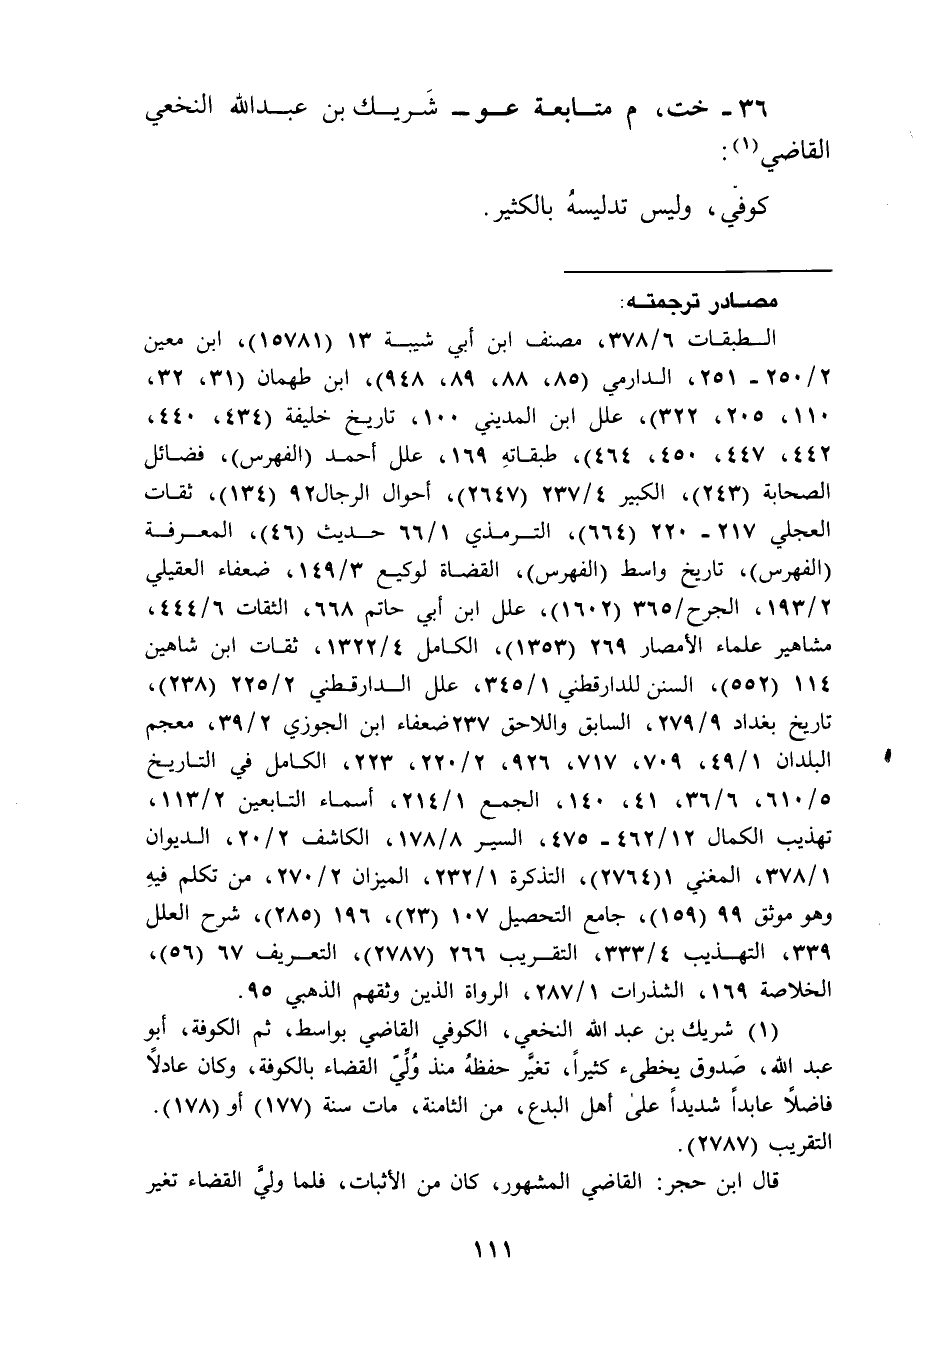 ٣٦ - خت، م متابعة عو - شَريك بن عبدالله النخعي
القاضي(١):
كوفيّ، وليس تدليسهُ بالكثير.
مصادر ترجمته:
الطبقات ٣٧٨/٦، مصنف ابن أبي شيبة ١٣ (١٥٧٨١)، ابن معين
٢/ ٢٥٠ - ٢٥١، الدارمي (٨٥، ٨٨، ٨٩، ٩٤٨)، ابن طهمان (٣١، ٣٢،
١١٠، ٢٠٥، ٣٢٢)، علل ابن المديني ١٠٠، تاريخ خليفة (٤٣٤، ٤٤٠،
٤٤٢، ٤٤٧، ٤٥٠، ٤٦٤)، طبقاته ١٦٩، علل أحمد (الفهرس)، فضائل
الصحابة (٢٤٣)، الكبير ٢٣٧/٤ (٢٦٤٧)، أحوال الرجال٩٢ (١٣٤)، ثقات
العجلي ٢١٧ - ٢٢٠ (٦٦٤)، الترمذي ٦٦/١ حديث (٤٦)، المعرفة
(الفهرس)، تاريخ واسط (الفهرس)، القضاة لوكيع ١٤٩/٣، ضعفاء العقيلي
١٩٣/٢، الجرح/٣٦٥ (١٦٠٢)، علل ابن أبي حاتم ٦٦٨، الثقات ٤٤٤/٦،
مشاهير علماء الأمصار ٢٦٩ (١٣٥٣)، الكامل ١٣٢٢/٤، ثقات ابن شاهين
١١٤ (٥٥٢)، السنن للدارقطني ٣٤٥/١، علل الدارقطني ٢٢٥/٢ (٢٣٨)،
تاريخ بغداد ٢٧٩/٩، السابق واللاحق ٢٣٧ضعفاء ابن الجوزي ٣٩/٢، معجم
البلدان ٤٩/١، ٧٠٩، ٧١٧، ٩٢٦، ٢٢٠/٢، ٢٢٣، الكامل في التاريخ
٦١٠/٥، ٣٦/٦، ٤١، ١٤٠، الجمع ٢١٤/١، أسماء التابعين ١١٣/٢،
تهذيب الكمال ٤٦٢/١٢ - ٤٧٥، السير ١٧٨/٨، الكاشف ٢٠/٢، الديوان
٣٧٨/١، المغني ١(٢٧٦٤)، التذكرة ٢٣٢/١، الميزان ٢٧٠/٢، من تكلم فيهِ
وهو موثق ٩٩ (١٥٩)، جامع التحصيل ١٠٧ (٢٣)، ١٩٦ (٢٨٥)، شرح العلل
٣٣٩، التهذيب ٣٣٣/٤، التقريب ٢٦٦ (٢٧٨٧)، التعريف ٦٧ (٥٦)،
الخلاصة ١٦٩، الشذرات ٢٨٧/١، الرواة الذين وثقهم الذهبي ٩٥.
(١) شريك بن عبد الله النخعي، الكوفي القاضي بواسط، ثم الكوفة، أبو
عبد الله، صَدوق يخطىء كثيراً، تغيَّر حفظهُ منذ وُلِّيّ القضاء بالكوفة، وكان عادلاً
فاضلاً عابداً شديداً علىٰ أهل البدع، من الثامنة، مات سنة (١٧٧) أو (١٧٨).
التقريب (٢٧٨٧).
قال ابن حجر: القاضي المشهور، كان من الأثبات، فلما وليَّ القضاء تغير
١١١